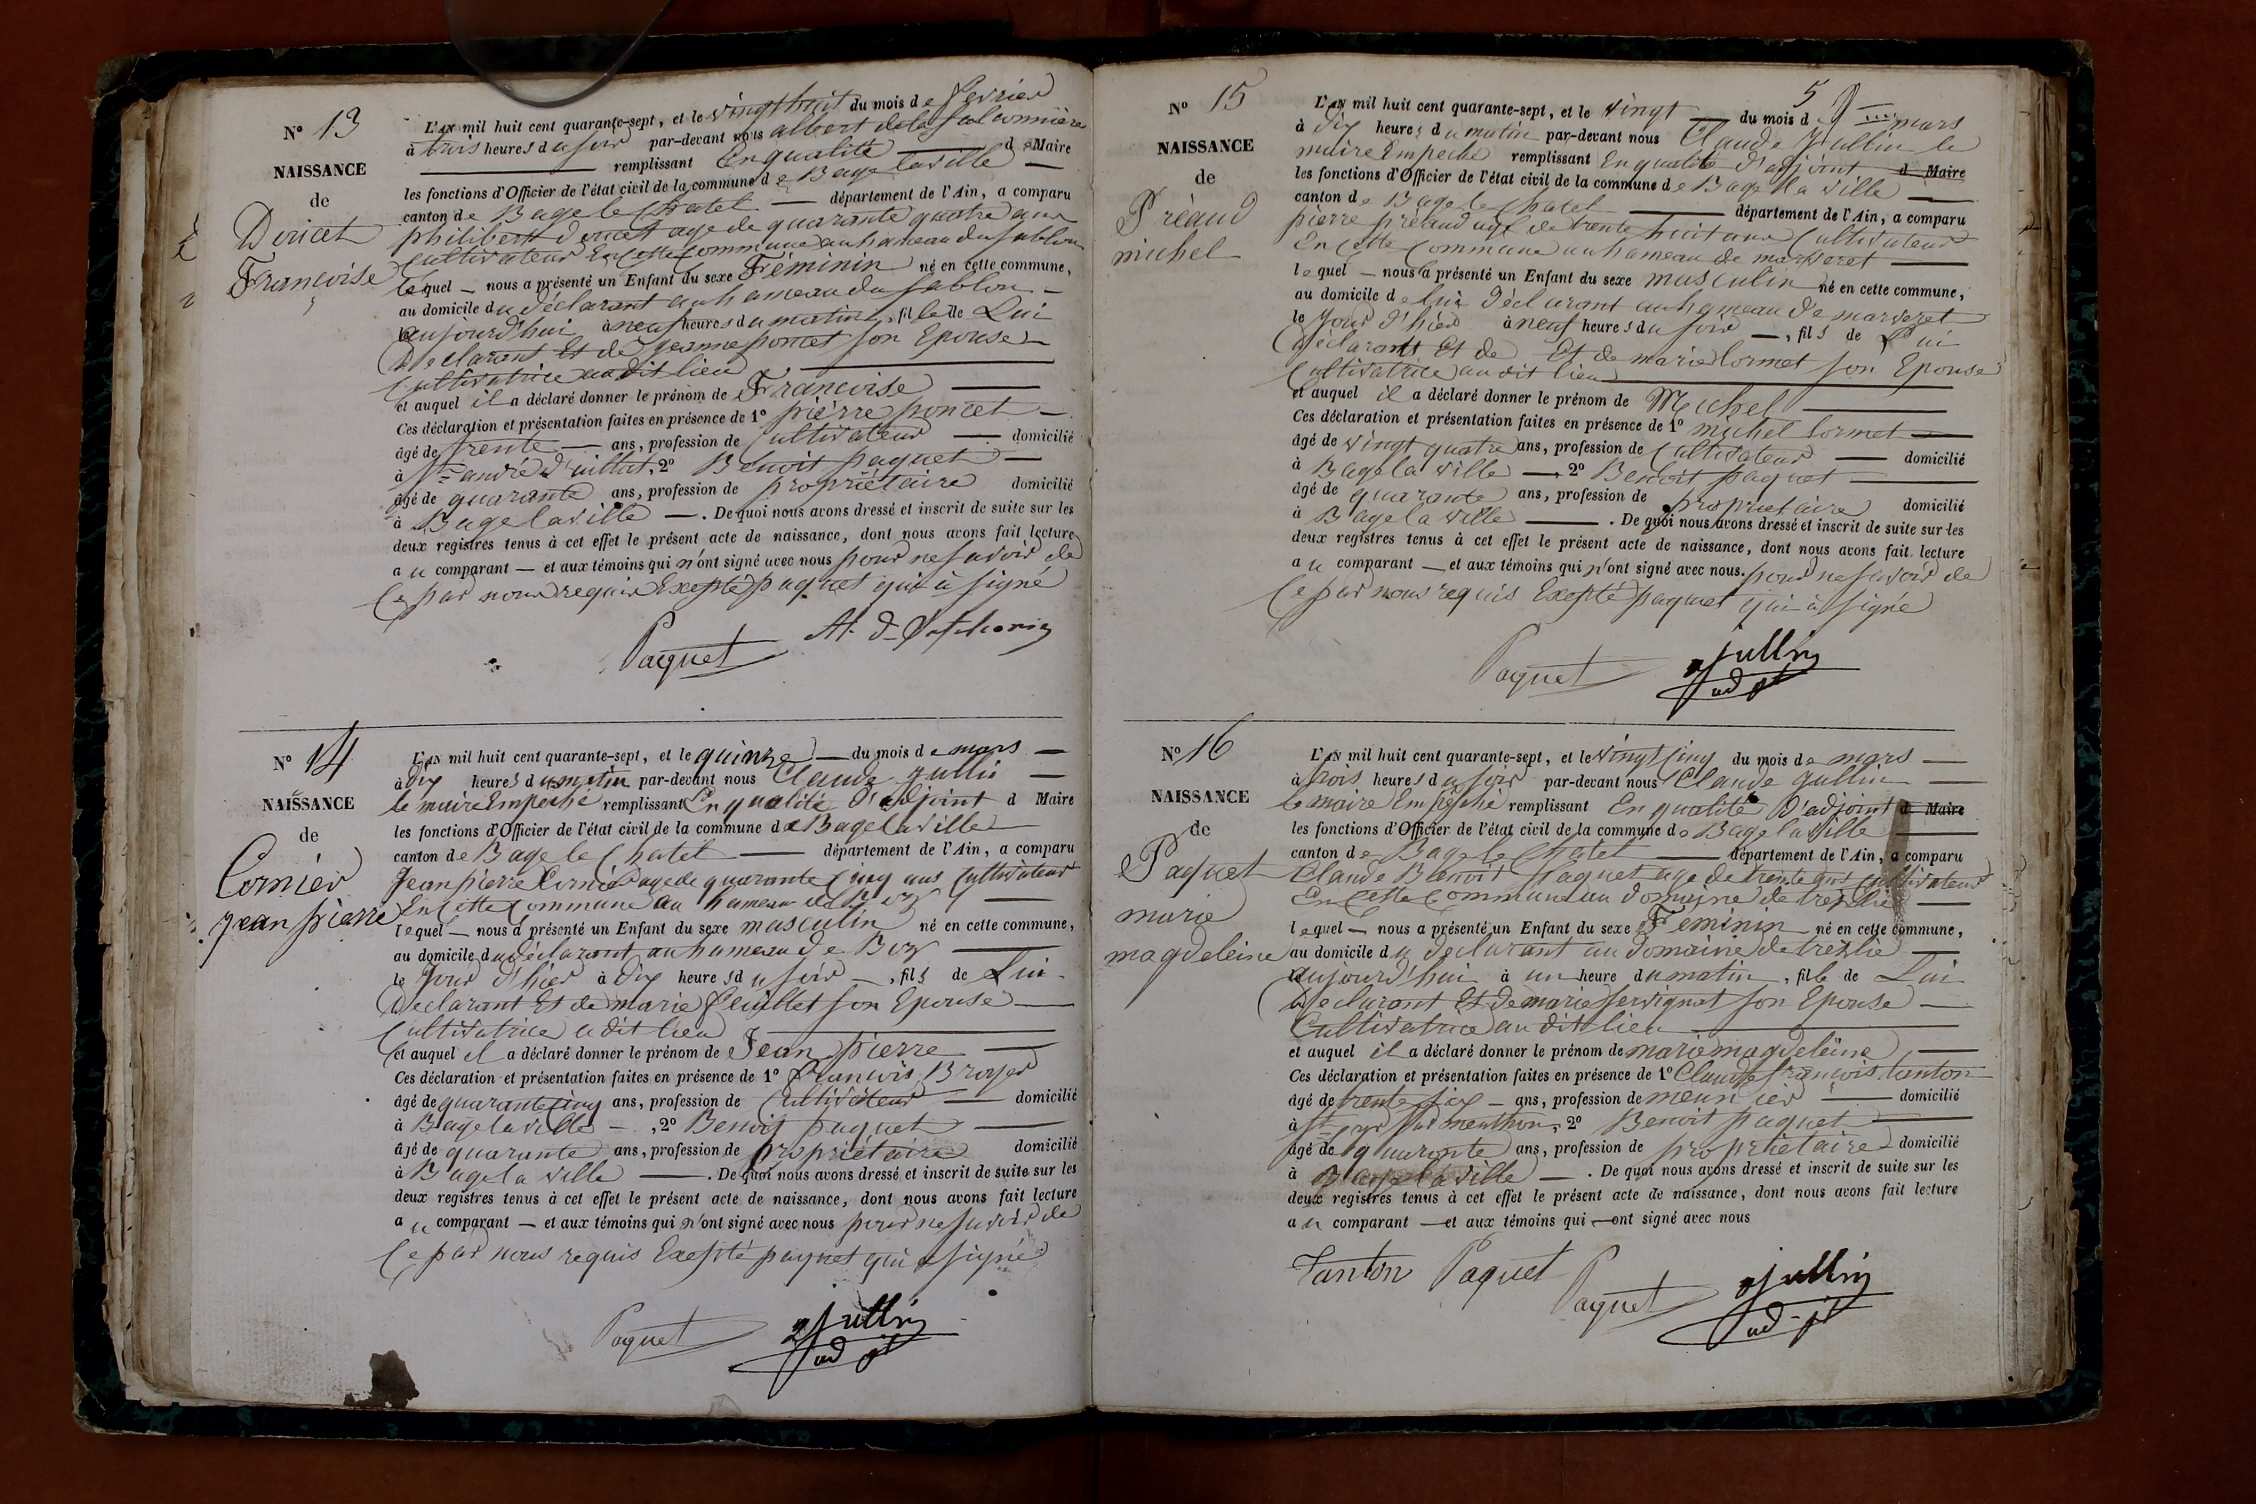 N° 13
NAISSANCE
de
Doucet
Francoise
L'AN mil huit cent quarante-sept, et le vingt huit du mois de fevrier
à trois heures du soir par-devant nous albert de la
remplissant En qualité de Maire
les fonctions d'Officier de l'état civil de la commune de Bage laville
canton de Bage le Chatel département de l'Ain, a comparu
philibert doucet age de quarante quatre ans
Cultivateur En cette Commune au hameau du sablon
lequel nous a présenté un Enfant du sexe Féminin né en cette commune,
au domicile du déclarant au hameau du sablon
aujourd'hui à neuf heures du matin, fille de Lui
Declarant Et de jeanne poncet son Epouse
Cultivatrice au dit lieu
et auquel il a déclaré donner le prénom de Francoise
Ces déclaration et présentation faites en présence de 1° pierre poncet
âgé de trente ans, profession de Cultivateur domicilié
à St andré d'huiriat, 2° Benoit paquet
âgé de quarante ans, profession de propriétaire domicilié
à Bage laville. De quoi nous avons dressé et inscrit de suite sur les
deux registres tenus à cet effet le présent acte de naissance, dont nous avons fait lecture
au comparant et aux témoins qui n'ont signé avec nous pour ne savoir de
Ce par nous requis Exepté paquet qui à signé
Paquet
N° 14
NAISSANCE
de
Cornier
jean pierre
L'AN mil huit cent quarante-sept, et le quinze du mois de mars
à dix heures du matin par-devant nous Claude jullin
le maire Empeché remplissant En qualité d'adjoint d Maire
les fonctions d'Officier de l'état civil de la commune de Bage laville
canton de Bage le Chatel département de l'Ain, a comparu
Jean pierre Cornier age de quarante Cinq ans Cultivateur
En Cette Commune au hameau de Boz
lequel nous a présenté un Enfant du sexe masculin né en cette commune,
au domicile du déclarant au hameau de Boz
le jour d'hier à dix heures du soir, fils de Lui
Declarant Et de marie feuillet son Epouse
Cultivatrice a dit lieu
et auquel il a déclaré donner le prénom de Jean pierre
Ces déclaration et présentation faites en présence de 1° francois Broyer
âgé de quarante Cinq ans, profession de Cultivateur domicilié
à Bage la ville, 2° Benoit paquet
âgé de quarante ans, profession de propriétaire domicilié
à Bage la ville. De quoi nous avons dressé et inscrit de suite sur les
deux registres tenus à cet effet le présent acte de naissance, dont nous avons fait lecture
au comparant et aux témoins qui n'ont signé avec nous pour ne savoir de
Ce par nous requis Exepté paquet qui a signé
Paquet jullin
adjt
5
N° 15
NAISSANCE
de
Préaud
michel
L'AN mil huit cent quarante-sept, et le vingt du mois d mars
à dix heures du matin par-devant nous Claude jullin le
maire Empeché remplissant En qualité d'adjoint d Maire
les fonctions d'Officier de l'état civil de la commune de Bage la ville
canton de Bage le Chatel département de l'Ain, a comparu
pierre préaud age de trente huit ans Cultivateur
En Cette Commune au hameau de marveret
lequel nous a présenté un Enfant du sexe masculin né en cette commune,
au domicile de lui déclarant au hameau de marveret
le jour d'hier à neuf heures du soir, fils de Lui
Déclarant Et de Et de marie Cormet son Epouse
Cultivatrice au dit lieu
et auquel il a déclaré donner le prénom de Michel
Ces déclaration et présentation faites en présence de 1° michel Cormet
âgé de vingt quatre ans, profession de Cultivateur domicilié
à Bage la ville 2° Benoit paquet
âgé de quarante ans, profession de propriétaire domicilié
à Bage la ville. De quoi nous avons dressé et inscrit de suite sur les
deux registres tenus à cet effet le présent acte de naissance, dont nous avons fait lecture
au comparant et aux témoins qui n'ont signé avec nous. pour ne savoir de
Ce par nous requis Exepté paquet qui à signé
Paquet jullin
adjt
N° 16
NAISSANCE
de
Paquet
marie
magdeleine
L'AN mil huit cent quarante-sept, et le vingt cinq du mois de mars
à trois heures du soir par-devant nous Claude jullin
le maire Empêché remplissant En qualité d'adjoint d Maire
les fonctions d'Officier de l'état civil de la commune de Bage la ville
canton de Bage le Chatel département de l'Ain, a comparu
Claude Benoit Paquet age de trente ans Cultivateur
En Cette Commune au domaine de
lequel nous a présenté un Enfant du sexe Féminin né en cette commune,
au domicile du declarant au domaine de
aujourd'hui à un heure du matin, fille de Lui
Declarant Et de marie servignat son Epouse
Cultivatrice au dit lieu
et auquel il a déclaré donner le prénom de marie magdeleine
Ces déclaration et présentation faites en présence de 1° Claude francois tanton
âgé de trente six ans, profession de meunier domicilié
à St cyr sur menthon, 2° Benoit paquet
âgé de quarante ans, profession de propriétaire domicilié
à Bage la ville. De quoi nous avons dressé et inscrit de suite sur les
deux registres tenus à cet effet le présent acte de naissance, dont nous avons fait lecture
au comparant et aux témoins qui ont signé avec nous
Tanton Paquet Paquet jullin
adjt